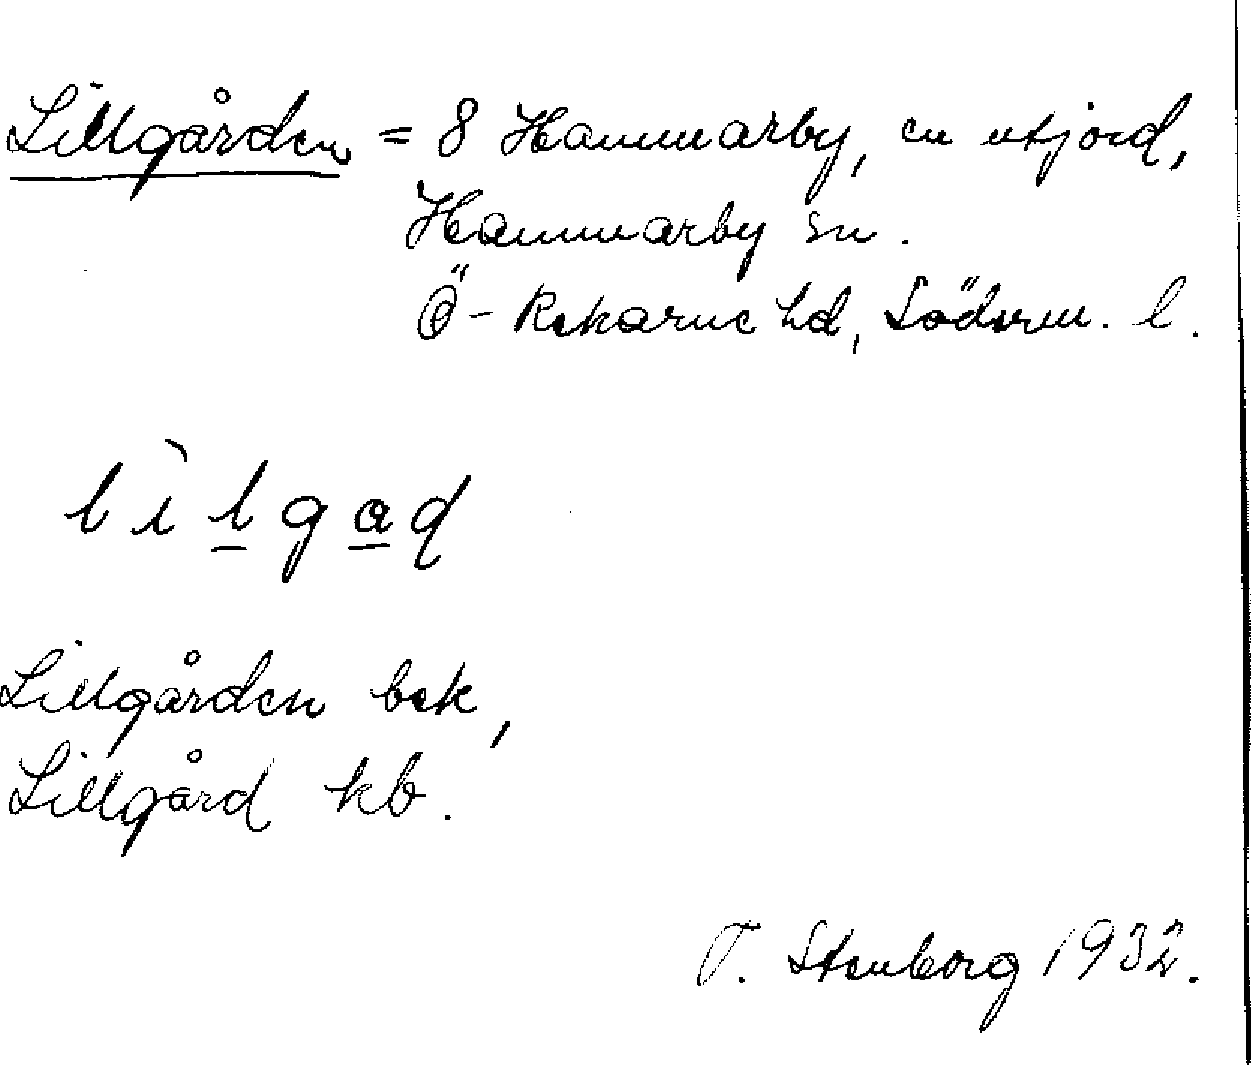 Lillgården = 8 Hammarby, en utjord,
Hammarby sn.
Ö-Rekarne hd, Söderm. l.
lìlgaɖ
Lillgården bek,
Lillgård kb.
T. Stenborg 1932.